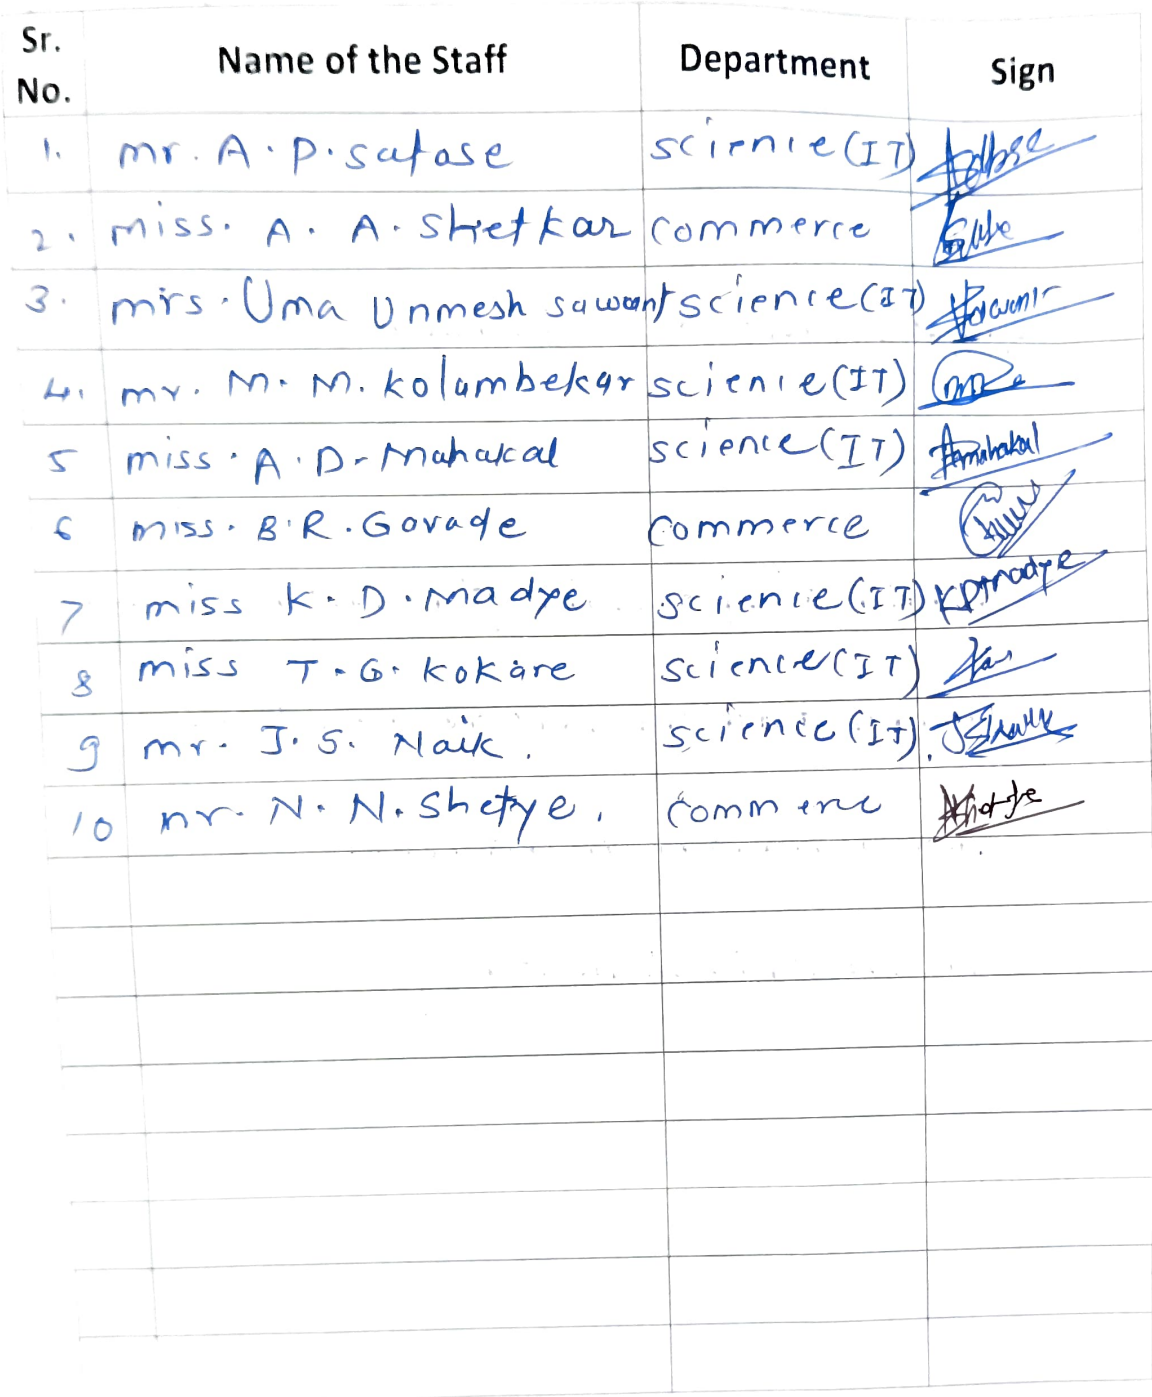 Sr. No. Name of the Staff Department Sign
1. mr. A. P. satose science (IT)
2. miss. A. A. Shetkar commerce
3. mrs. Uma Unmesh sawant science (IT)
4. mr. M. M. kolambekar science (IT)
5 miss. A. D. Mahakal science (IT) Amahakal
6 miss. B. R. Govade commerce
7 miss K. D. Madye science (IT) KDMadye
8 miss T. G. kokare science (IT)
9 mr. J. S. Naik. science (IT).
10 mr. N. N. Shetye.